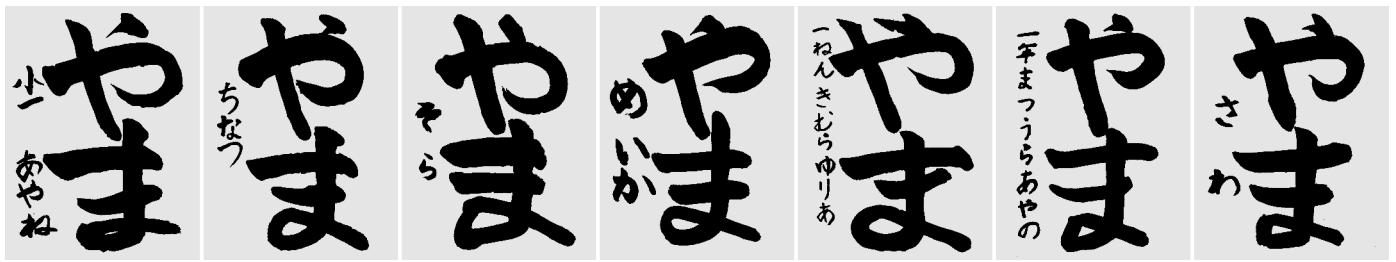 やま
小一 あやね
やま
ちなつ
やま
そら
やま
めいか
やま
一ねんきむらゆりあ
やま
一年まつうらあやの
やま
さわ